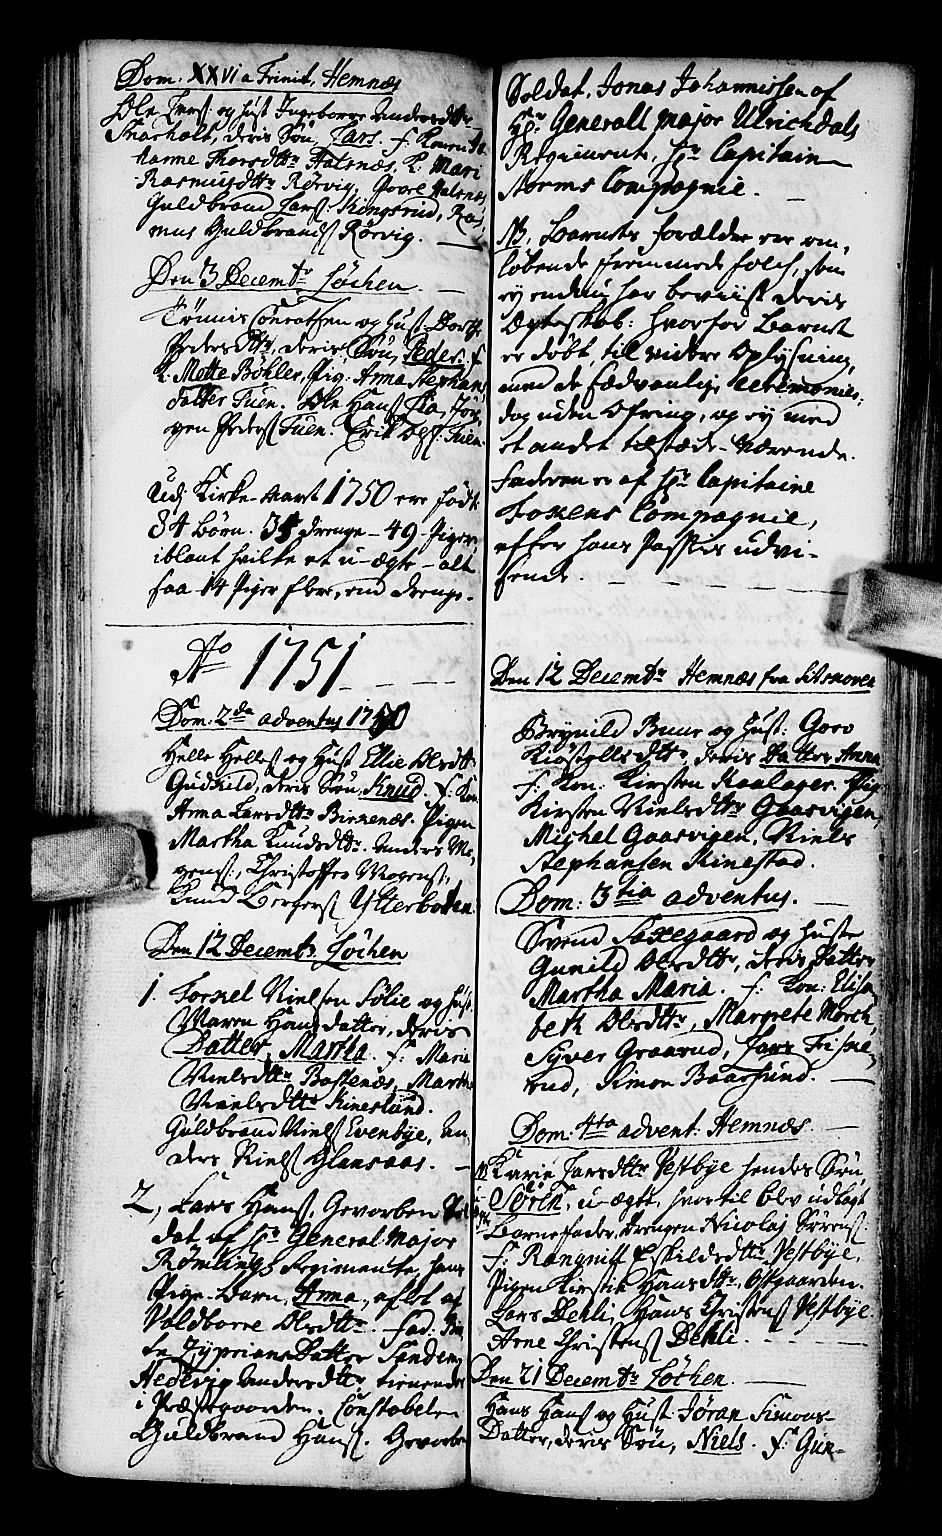 Dom. XXVI a Trinit, Hemnæs
Ole Larsß og Hust Ingeborge Andersdttr
Snarholt, deris Søn, Lars. f.
Hanne Thorsdttr Halsnæs, P. Mari
Rasmusdttr Rørvig, Goure Halsnæs
Guldbrand Larsß: Kingsrud, Ras,
mus Guldbrandsß Rørvig.
Den 3 Decembr Løchen.
Tønnis Conrathsen og Hust: Dorthe
Pedersdttr, deris Søn, Peder. f.
k: Mette Bøhler, Pig: Anna Stephans
datter Tuen. Ole Hansß Lia, Jør,
gen Pedersß Tuen. Erik Olsß: Tuen.
Udj Kirke-aaret 1750 ere født
84 børn. 35 drenge - 49 Piger
iblant hvilke et u-ægte - alt
saa 14 Piger flere, end drenge.
Ao 1751
Dom: 2da adventus 1750
Helle Hellesß og Hust Ellie Olsdttr
Gudkild, deris Søn, Knud. f: Kon:
Anna Larsdttr Birkenæs. Pigen
Martha Knudsdttr. Anders Mo,
gensß, Christoffer Mogensß,
Knud Torgersß Ytterbotten
Den 12 Decembr Løchen
1. Torkel Nielsen Sølie og Hust
Maren Hansdatter, deris
Datter, Martha. f: Maria
Nielsdttr Bostenæs, Martha
Nielsdttr Kineslund.
Guldbrand Nielsß Evenbye, An
ders Nielsß Glansaas.
2, Lars Hansß, Gevorben Sol
dat af Hr General Major
Rømlings Regimente, hans
Pige-Barn, Anna, aflet af
Voldborre Olsdttr. Fad:
Zyprians Datter Sanden,
Hedevig Andersdttr tienende
i Præstegaarden. Constabelen
Guldbrand Hansß. Gevorben
Soldat, Jonas Johannissen af
Hr Generall major Ulrichdals
Regiment, Hr Capitain
Norms Compagnie.
NB, Barnets forældre ere om,
løbende fremmede folch, som
ey endnu har beviist deris
Ægteskab: hvorfor Barnet
er døbt, til videre Oplysning,
med de sædvanlig: Ceremonier,
dog uden Ofring, og ey med
et andet tilstæde-værende.
Faderen er af Hr Capitaine
Foxens Compagnie,
efter hans Passes udvi-
sende.
Den 12 Decembr Hemnæs fra Sitskoven
Brynild Buer og Hust: Goro
Kiøstelsdttr, deris Datter Anna
f: Kon: Kirsten Kaalager. Pig:
Kirsten Nielsdttr Gaasvigen,
Michel Gaasvigen, Niels
Stephansen Kinestad.
Dom: 3tia adventus.
Svend Saxegaard og Huste
Gunild Olsdttr, deris Datter
Martha Maria. f: Kon: Elisa
beth Olsdttr, Margrete Morck,
Syver Graarud, Lars Friske,
rud, Simon Baarsund.
Dom: 4ta advent: Hemnæs.
Karie Larsdttr Vestbye hendes Søn
Sören, u-ægte, hvortil blev udlagt
Barnefader, drengen Nicolaj Sørensß:
f: Rangnill Eskildsdttr Vestbye,
Pigen Kirstie Hansdttr, Ostgaarden.
Lars Dehli, Hans Christensß Vestbye.
Arne Christensß Dehli.
Den 21 Decembr Løchen.
Hans Hansß og Hust Jøran Simons-
Datter, deris Søn, Niels. f: Gun-